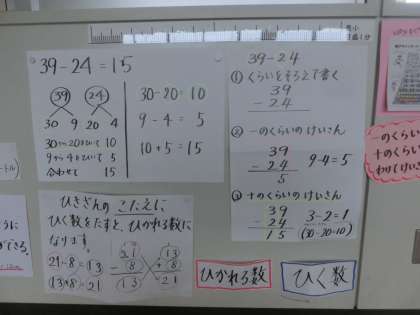 39-24=15
39 24
30 9 20 4
30から20ひいて 10
9から4ひいて 5
合わせて 15
30-20=10
9-4=5
10+5=15
39-24
① くらいをそろえて書く
39
-24
② 一のくらいのけいさん
39
-24
5
9-4=5
③ 十のくらいのけいさん
39
-24
15
3-2=1
(30-20=10)
ひきざんの こたえに
ひく数をたすと、ひかれる数に
なります。
21-8=13
13+8=21
21
-8
13
13
+8
21
ひかれる数
ひく数
一のくらい
十のくらい
わけてけいさん